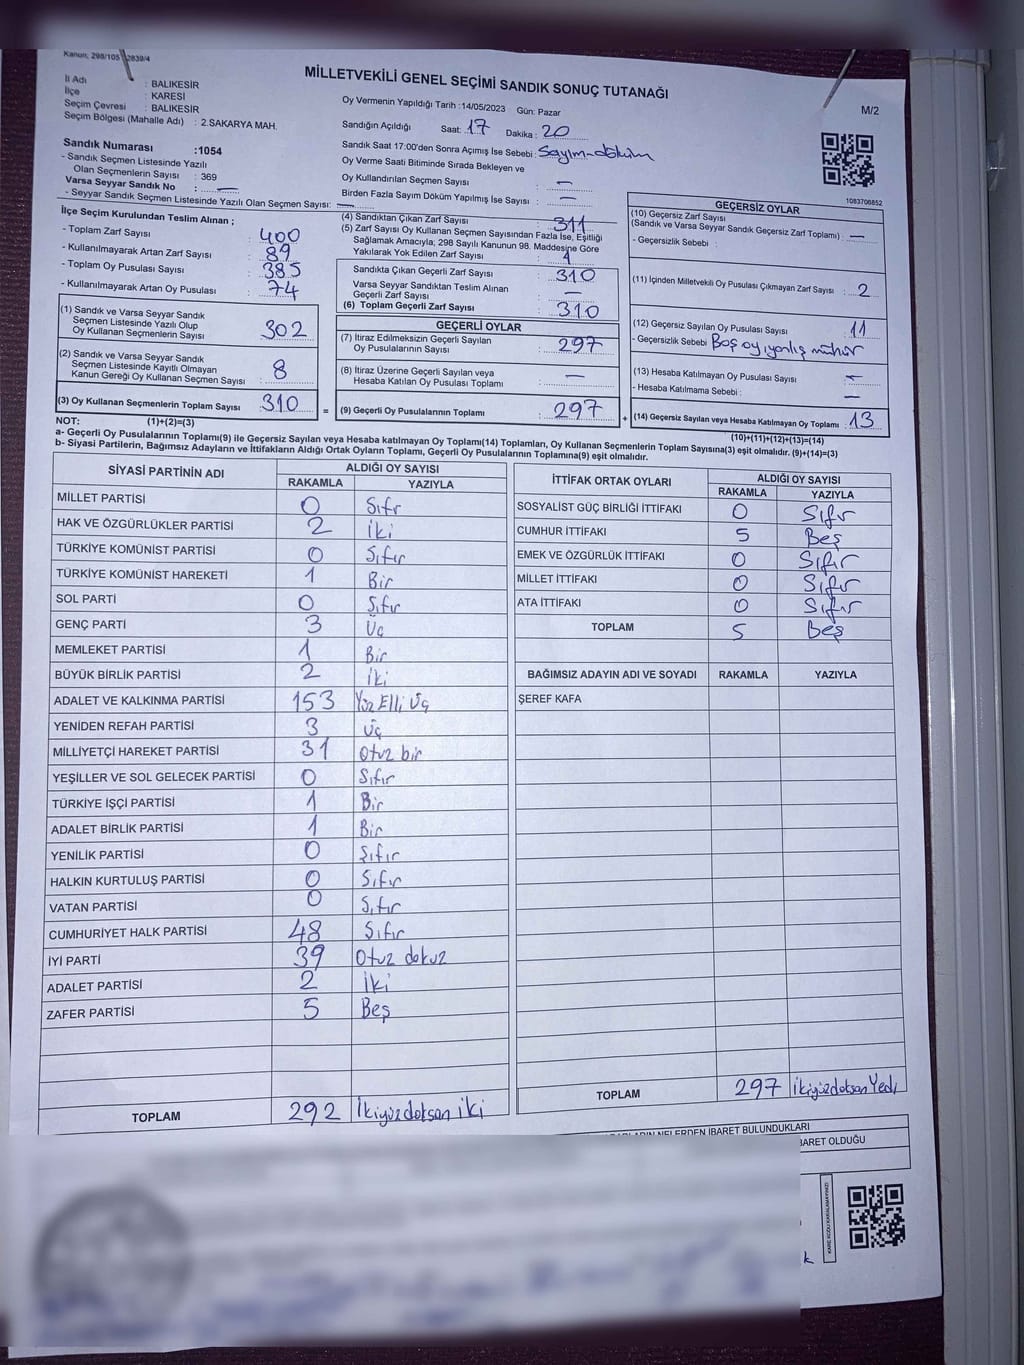 Kanun; 298/105 2839/4
MİLLETVEKİLİ GENEL SEÇİMİ SANDIK SONUÇ TUTANAĞI
M/2
İl Adı : BALIKESİR
İlçe : KARESİ
Seçim Çevresi : BALIKESİR
Seçim Bölgesi (Mahalle Adı) : 2.SAKARYA MAH.
Oy Vermenin Yapıldığı Tarih :14/05/2023 Gün: Pazar
Sandığın Açıldığı Saat: 17 Dakika : 20
Sandık Saat 17:00'den Sonra Açımış İse Sebebi : Sayım-döküm
Oy Verme Saati Bitiminde Sırada Bekleyen ve
Oy Kullandırılan Seçmen Sayısı : —
Birden Fazla Sayım Döküm Yapılmış İse Sayısı : —
Sandık Numarası :1054
- Sandık Seçmen Listesinde Yazılı
Olan Seçmenlerin Sayısı : 369
Varsa Seyyar Sandık No : —
- Seyyar Sandık Seçmen Listesinde Yazılı Olan Seçmen Sayısı: —
1083708852
İlçe Seçim Kurulundan Teslim Alınan ;
- Toplam Zarf Sayısı : 400
- Kullanılmayarak Artan Zarf Sayısı : 89
- Toplam Oy Pusulası Sayısı : 385
- Kullanılmayarak Artan Oy Pusulası : 74
(1) Sandık ve Varsa Seyyar Sandık
Seçmen Listesinde Yazılı Olup
Oy Kullanan Seçmenlerin Sayısı : 302
(2) Sandık ve Varsa Seyyar Sandık
Seçmen Listesinde Kayıtlı Olmayan
Kanun Gereği Oy Kullanan Seçmen Sayısı : 8
(3) Oy Kullanan Seçmenlerin Toplam Sayısı : 310
(1)+(2)=(3)
(4) Sandıktan Çıkan Zarf Sayısı : 311
(5) Zarf Sayısı Oy Kullanan Seçmen Sayısından Fazla İse, Eşitliği
Sağlamak Amacıyla; 298 Sayılı Kanunun 98. Maddesine Göre
Yakılarak Yok Edilen Zarf Sayısı : 1
Sandıkta Çıkan Geçerli Zarf Sayısı : 310
Varsa Seyyar Sandıktan Teslim Alınan
Geçerli Zarf Sayısı : —
(6) Toplam Geçerli Zarf Sayısı : 310
GEÇERLİ OYLAR
(7) İtiraz Edilmeksizin Geçerli Sayılan
Oy Pusulalarının Sayısı : 297
(8) İtiraz Üzerine Geçerli Sayılan veya
Hesaba Katılan Oy Pusulası Toplamı : —
= (9) Geçerli Oy Pusulalarının Toplamı : 297
GEÇERSİZ OYLAR
(10) Geçersiz Zarf Sayısı
(Sandık ve Varsa Seyyar Sandık Geçersiz Zarf Toplamı) : —
- Geçersizlik Sebebi :
(11) İçinden Milletvekili Oy Pusulası Çıkmayan Zarf Sayısı : 2
(12) Geçersiz Sayılan Oy Pusulası Sayısı : 11
- Geçersizlik Sebebi : Boş oy, yanlış mühür
(13) Hesaba Katılmayan Oy Pusulası Sayısı : —
- Hesaba Katılmama Sebebi : —
+ (14) Geçersiz Sayılan veya Hesaba Katılmayan Oy Toplamı : 13
(10)+(11)+(12)+(13)=(14)
NOT:
a- Geçerli Oy Pusulalarının Toplamı(9) ile Geçersiz Sayılan veya Hesaba katılmayan Oy Toplamı(14) Toplamları, Oy Kullanan Seçmenlerin Toplam Sayısına(3) eşit olmalıdır. (9)+(14)=(3)
b- Siyasi Partilerin, Bağımsız Adayların ve İttifakların Aldığı Ortak Oyların Toplamı, Geçerli Oy Pusulalarının Toplamına(9) eşit olmalıdır.
SİYASİ PARTİNİN ADI ALDIĞI OY SAYISI
RAKAMLA YAZIYLA
MİLLET PARTİSİ 0 Sıfır
HAK VE ÖZGÜRLÜKLER PARTİSİ 2 İki
TÜRKİYE KOMÜNİST PARTİSİ 0 Sıfır
TÜRKİYE KOMÜNİST HAREKETİ 1 Bir
SOL PARTİ 0 Sıfır
GENÇ PARTİ 3 Üç
MEMLEKET PARTİSİ 1 Bir
BÜYÜK BİRLİK PARTİSİ 2 İki
ADALET VE KALKINMA PARTİSİ 153 Yüz Elli Üç
YENİDEN REFAH PARTİSİ 3 Üç
MİLLİYETÇİ HAREKET PARTİSİ 31 Otuz bir
YEŞİLLER VE SOL GELECEK PARTİSİ 0 Sıfır
TÜRKİYE İŞÇİ PARTİSİ 1 Bir
ADALET BİRLİK PARTİSİ 1 Bir
YENİLİK PARTİSİ 0 Sıfır
HALKIN KURTULUŞ PARTİSİ 0 Sıfır
VATAN PARTİSİ 0 Sıfır
CUMHURİYET HALK PARTİSİ 48 Sıfır
İYİ PARTİ 39 Otuz dokuz
ADALET PARTİSİ 2 İki
ZAFER PARTİSİ 5 Beş
TOPLAM 292 İkiyüzdoksan iki
İTTİFAK ORTAK OYLARI ALDIĞI OY SAYISI
RAKAMLA YAZIYLA
SOSYALİST GÜÇ BİRLİĞİ İTTİFAKI 0 Sıfır
CUMHUR İTTİFAKI 5 Beş
EMEK VE ÖZGÜRLÜK İTTİFAKI 0 Sıfır
MİLLET İTTİFAKI 0 Sıfır
ATA İTTİFAKI 0 Sıfır
TOPLAM 5 Beş
BAĞIMSIZ ADAYIN ADI VE SOYADI RAKAMLA YAZIYLA
ŞEREF KAFA
TOPLAM 297 İkiyüzdoksan Yedi
NELERDEN İBARET BULUNDUKLARI
İBARET OLDUĞU